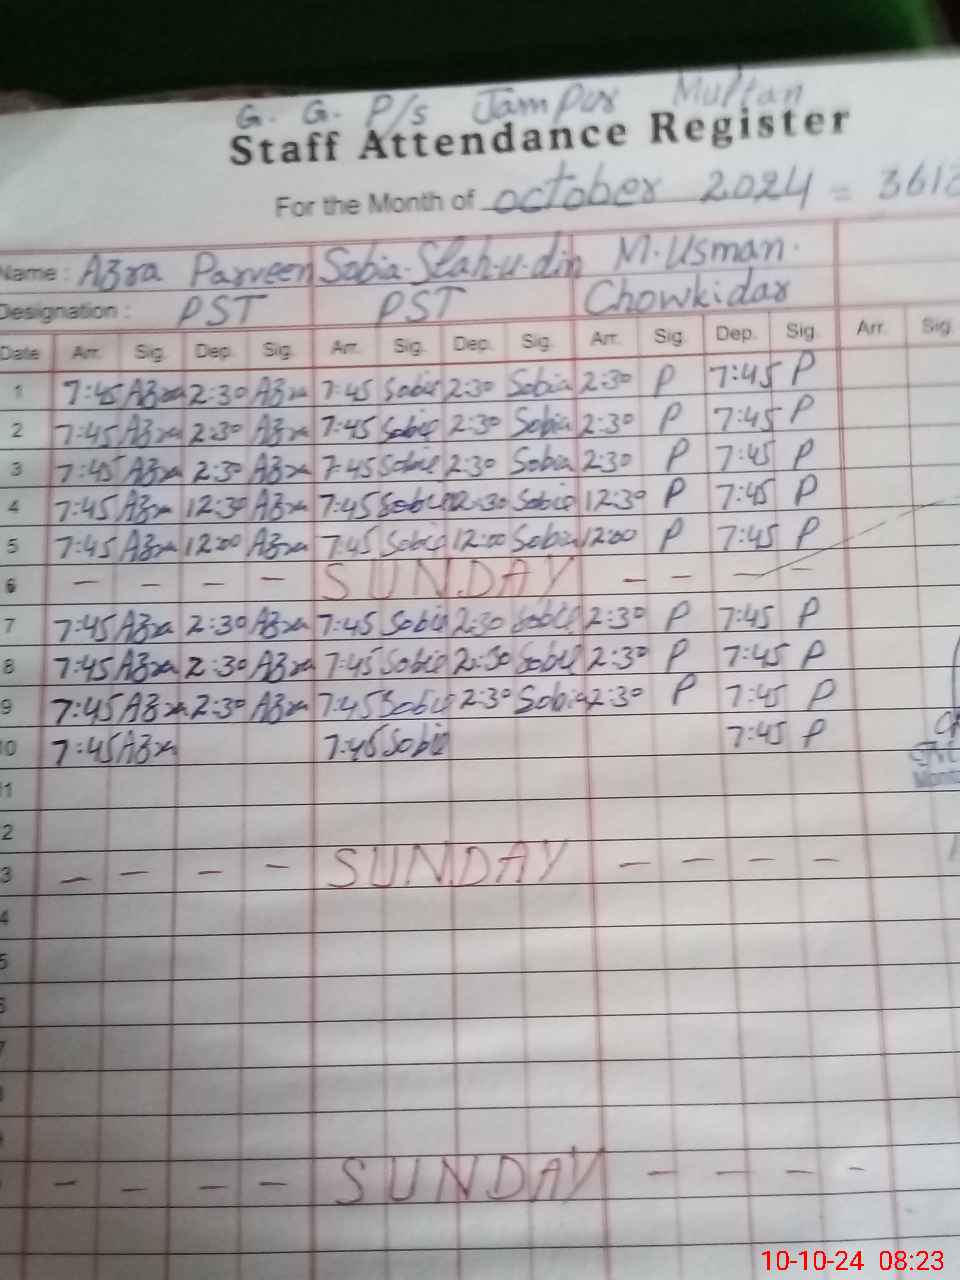 G. G. P/s Jampur Multan
Staff Attendance Register
For the Month of october 2024 = 3613
Name : Azra Parveen Sobia Slah-u-din M. Usman.
Designation : PST PST Chowkidar
Date Arr. Sig. Dep. Sig. Arr. Sig. Dep. Sig. Arr. Sig. Dep. Sig. Arr. Sig.
1 7:45 Azra 2:30 Azra 7:45 Sobia 2:30 Sobia 2:30 P 7:45 P
2 7:45 Azra 2:30 Azra 7:45 Sobia 2:30 Sobia 2:30 P 7:45 P
3 7:45 Azra 2:30 Azra 7:45 Sobia 2:30 Sobia 2:30 P 7:45 P
4 7:45 Azra 12:30 Azra 7:45 Sobia 12:30 Sobia 12:30 P 7:45 P
5 7:45 Azra 12:00 Azra 7:45 Sobia 12:00 Sobia 12:00 P 7:45 P
6 - - - - SUNDAY - - - -
7 7:45 Azra 2:30 Azra 7:45 Sobia 2:30 Sobia 2:30 P 7:45 P
8 7:45 Azra 2:30 Azra 7:45 Sobia 2:30 Sobia 2:30 P 7:45 P
9 7:45 Azra 2:30 Azra 7:45 Sobia 2:30 Sobia 2:30 P 7:45 P
10 7:45 Azra 7:45 Sobia 7:45 P
1
2
3 - - - - SUNDAY - - - -
4
5
- - - - SUNDAY - - - -
10-10-24 08:23